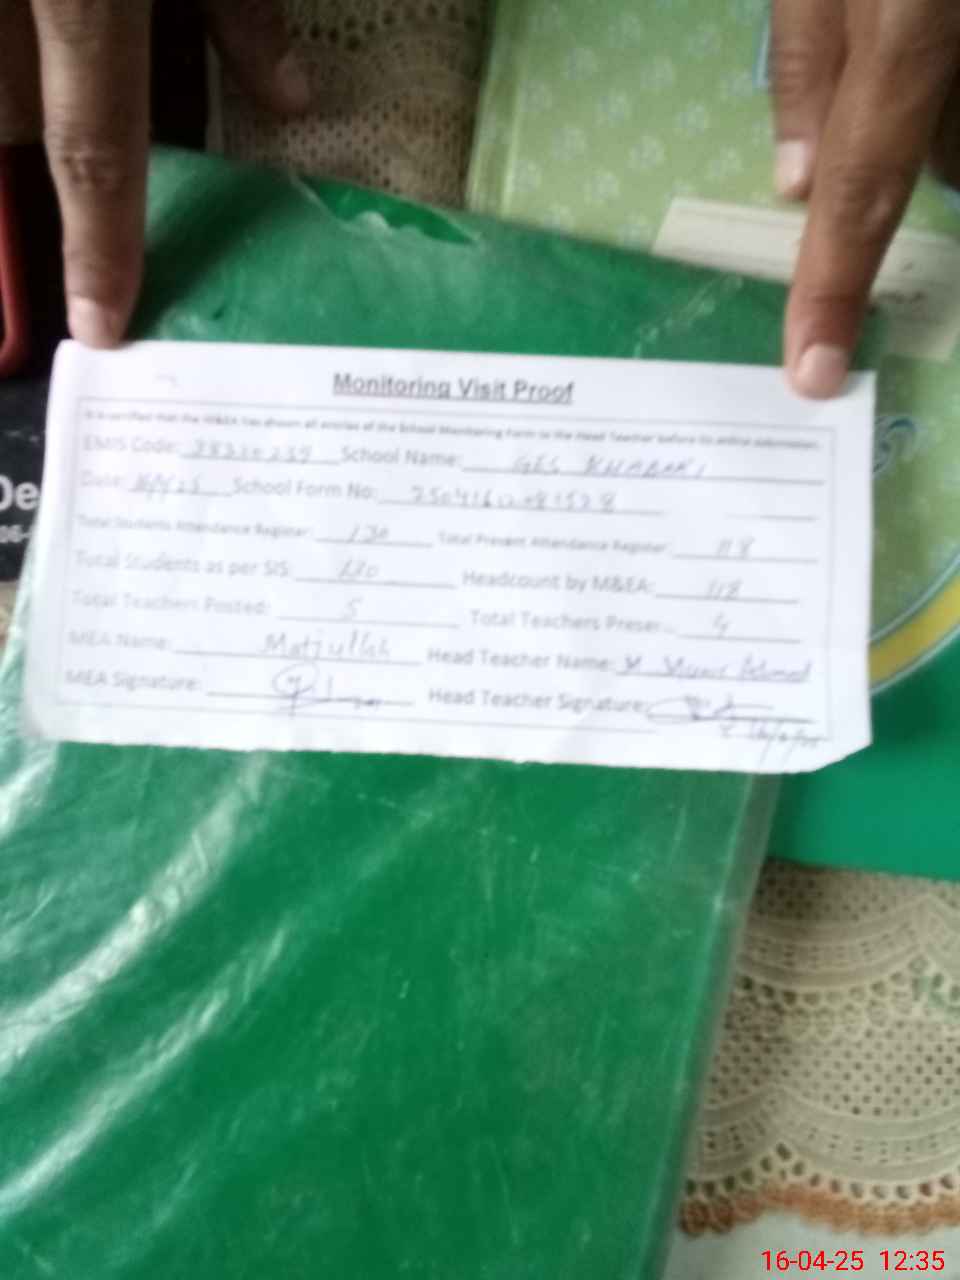 Monitoring Visit Proof
It is certified that the M&EA has shown all entries of the School Monitoring Form to the Head Teacher before its online submission.
EMIS Code: School Name: GES KHABAKI
Date: 16/4/25 School Form No:
Total Students Attendance Register: 130 Total Present Attendance Register: 118
Total Students as per SIS: 130 Headcount by M&EA: 118
Total Teachers Posted: 5 Total Teachers Presen 4
MEA Name: Matiullah Head Teacher Name: Ahmed
MEA Signature: Head Teacher Signature:
16-04-25 12:35